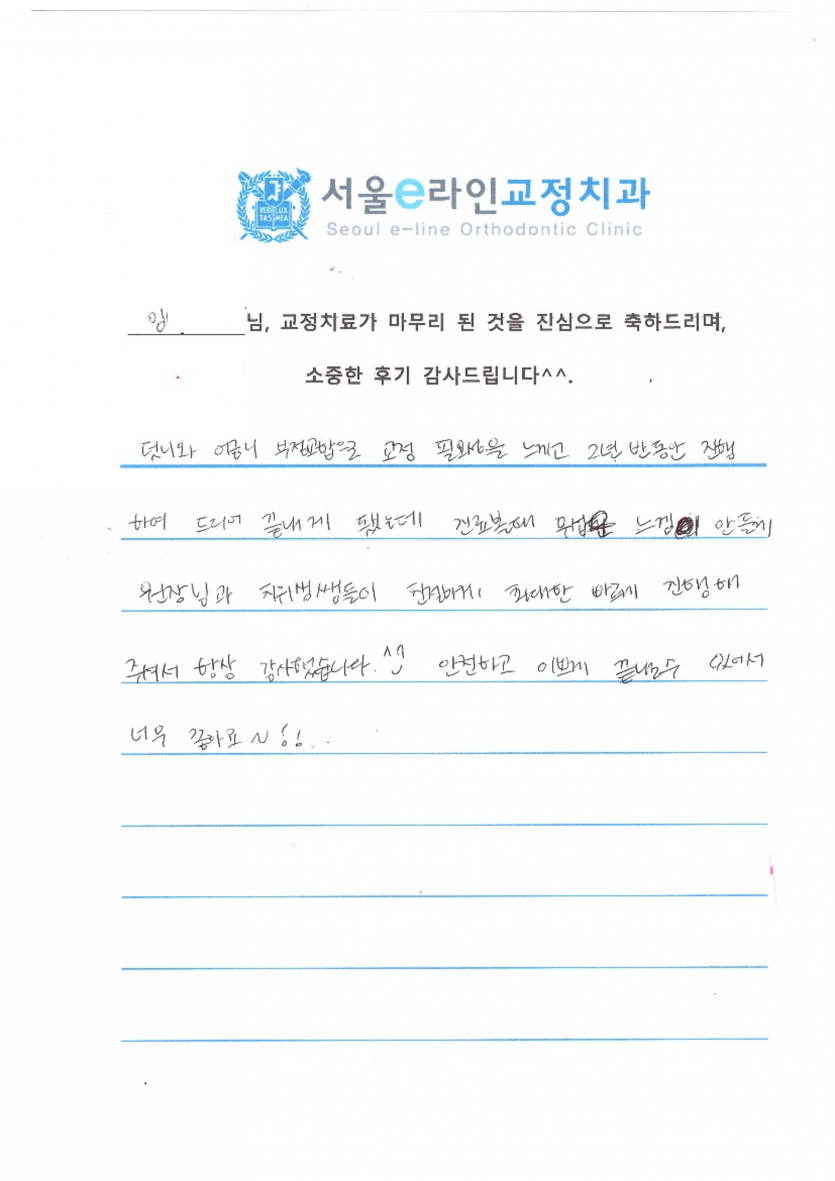 VERI LUX
TAS MEA
서울e라인교정치과
Seoul e-line Orthodontic Clinic
임 님, 교정치료가 마무리 된 것을 진심으로 축하드리며,
소중한 후기 감사드립니다^^.
덧니와 어금니 부정교합으로 교정 필요성을 느끼고 2년 반동안 진행
하여 드디어 끝내게 됐는데 진료볼때 무서운 느낌이 안들게
원장님과 치위생쌤들이 친절하게 최대한 빠르게 진행해
주셔서 항상 감사했습니다.^^ 안전하고 이쁘게 끝낼수 있어서
너무 좋아요~